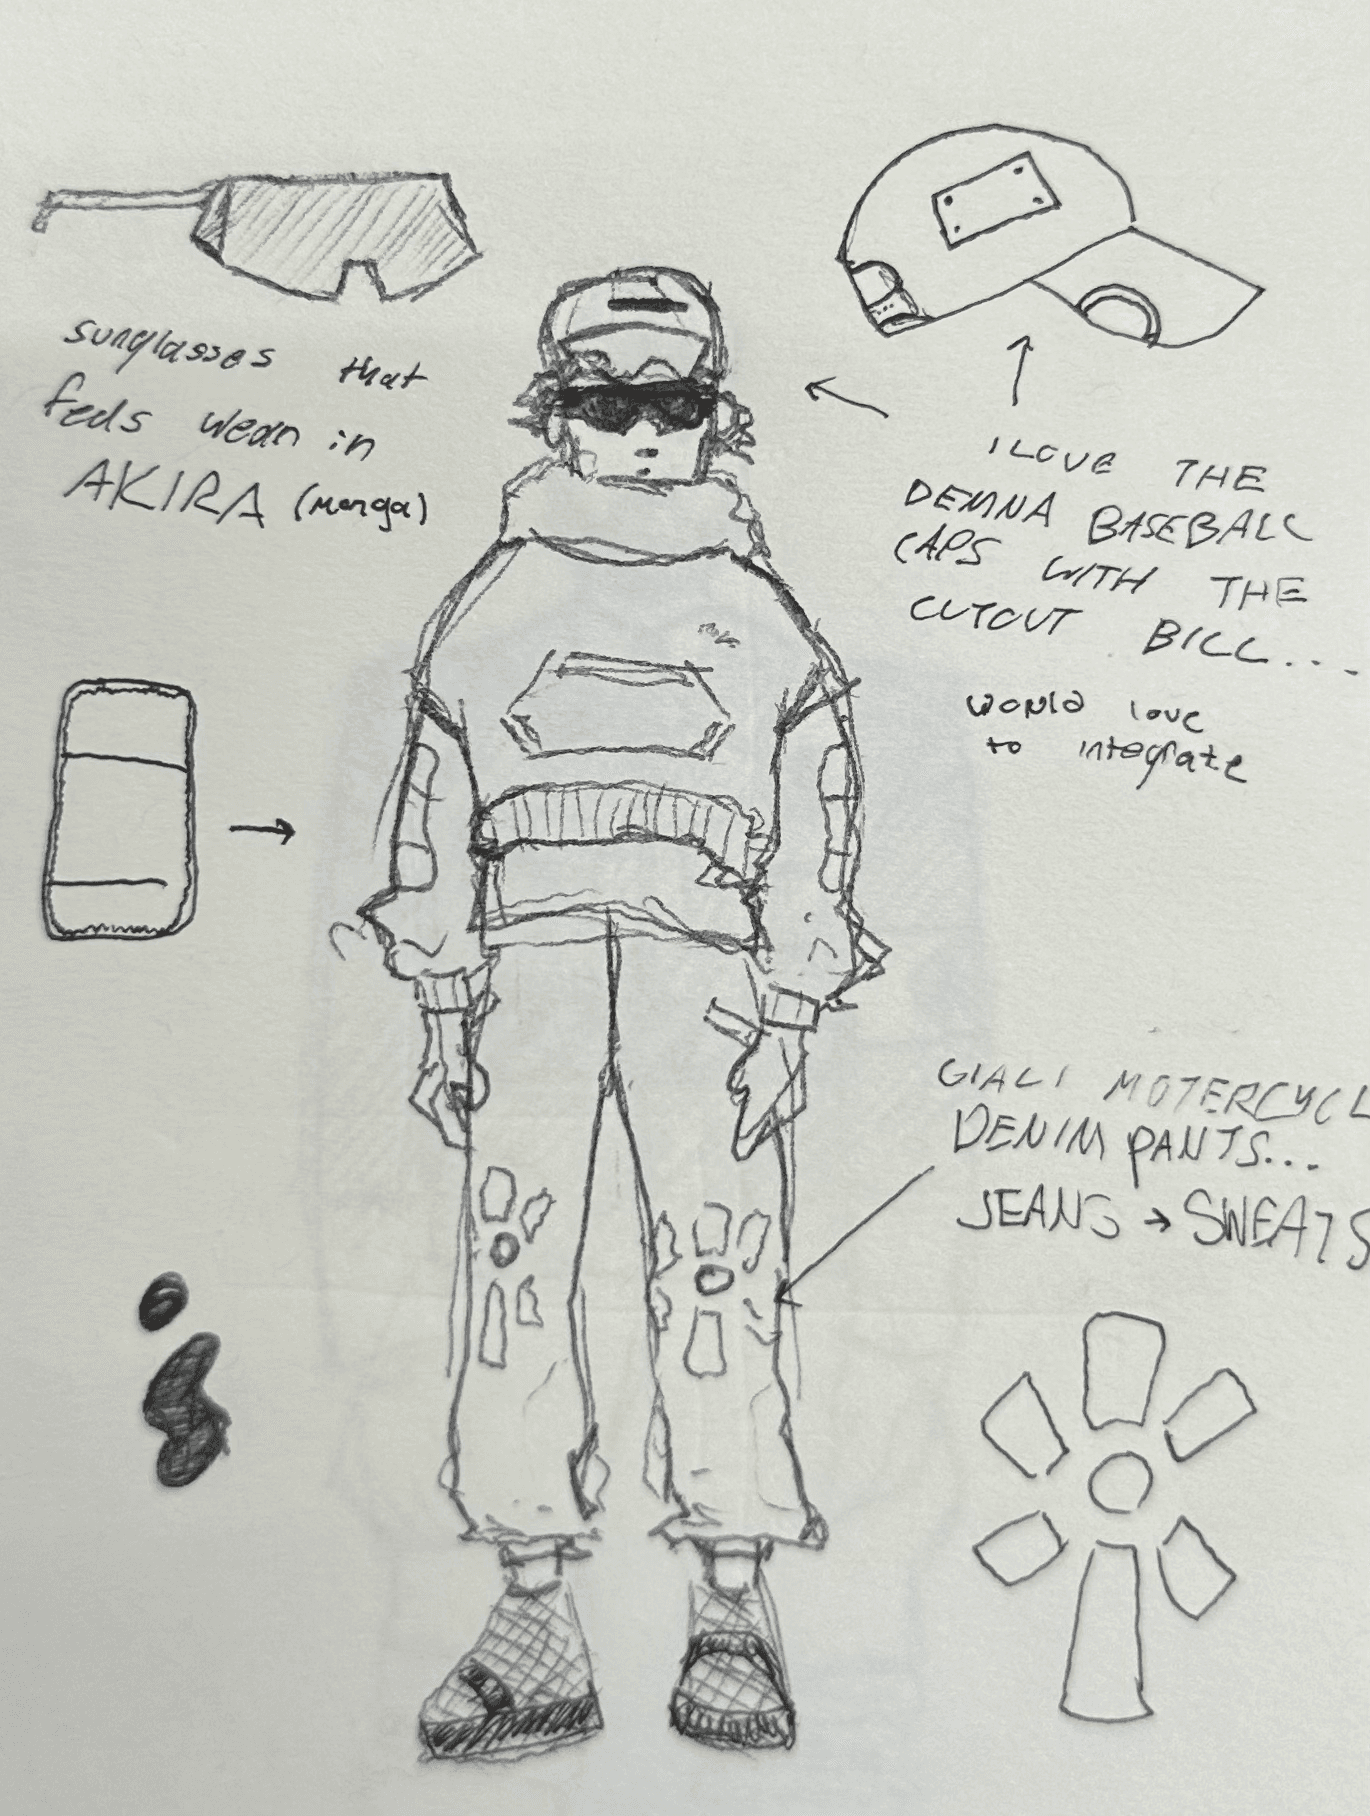 sunglasses that
feels wean in
AKIRA (manga)
I LOVE THE
DEMNA BASEBALL
CAPS WITH THE
CUTOUT BILL...
would love
to integrate
MOTERCYCL
DENIM PANTS...
JEANS → SWEATS